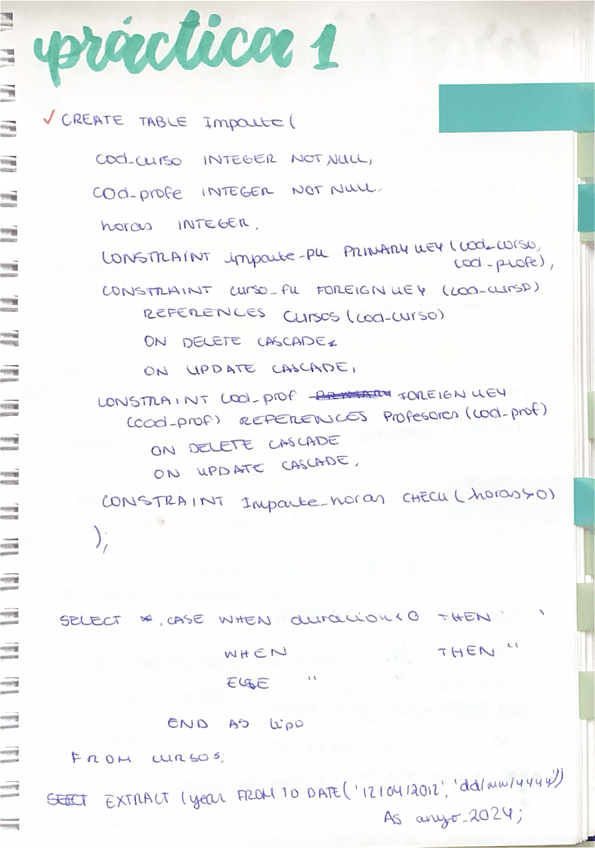 práctica 1
✓ CREATE TABLE Imparte(
cod_curso INTEGER NOT NULL,
cod_profe INTEGER NOT NULL.
horas INTEGER,
CONSTRAINT imparte_PK PRIMARY KEY (cod_curso,
cod_profe),
CONSTRAINT curso_fk FOREIGN KEY (cod_curso)
REFERENCES Cursos (cod_curso)
ON DELETE CASCADE
ON UPDATE CASCADE,
CONSTRAINT cod_prof PRIMARY FOREIGN KEY
(cod_prof) REFERENCES Profesores (cod_prof)
ON DELETE CASCADE
ON UPDATE CASCADE,
CONSTRAINT Imparte_horas CHECK (horas>0)
);
SELECT *, CASE WHEN duracion<0 THEN ' '
WHEN THEN "
ELSE "
END AS tipo
FROM CURSOS;
SELECT EXTRACT (year FROM TO DATE('12/04/2012', 'dd/mm/yyyy'))
As anyo_2024;